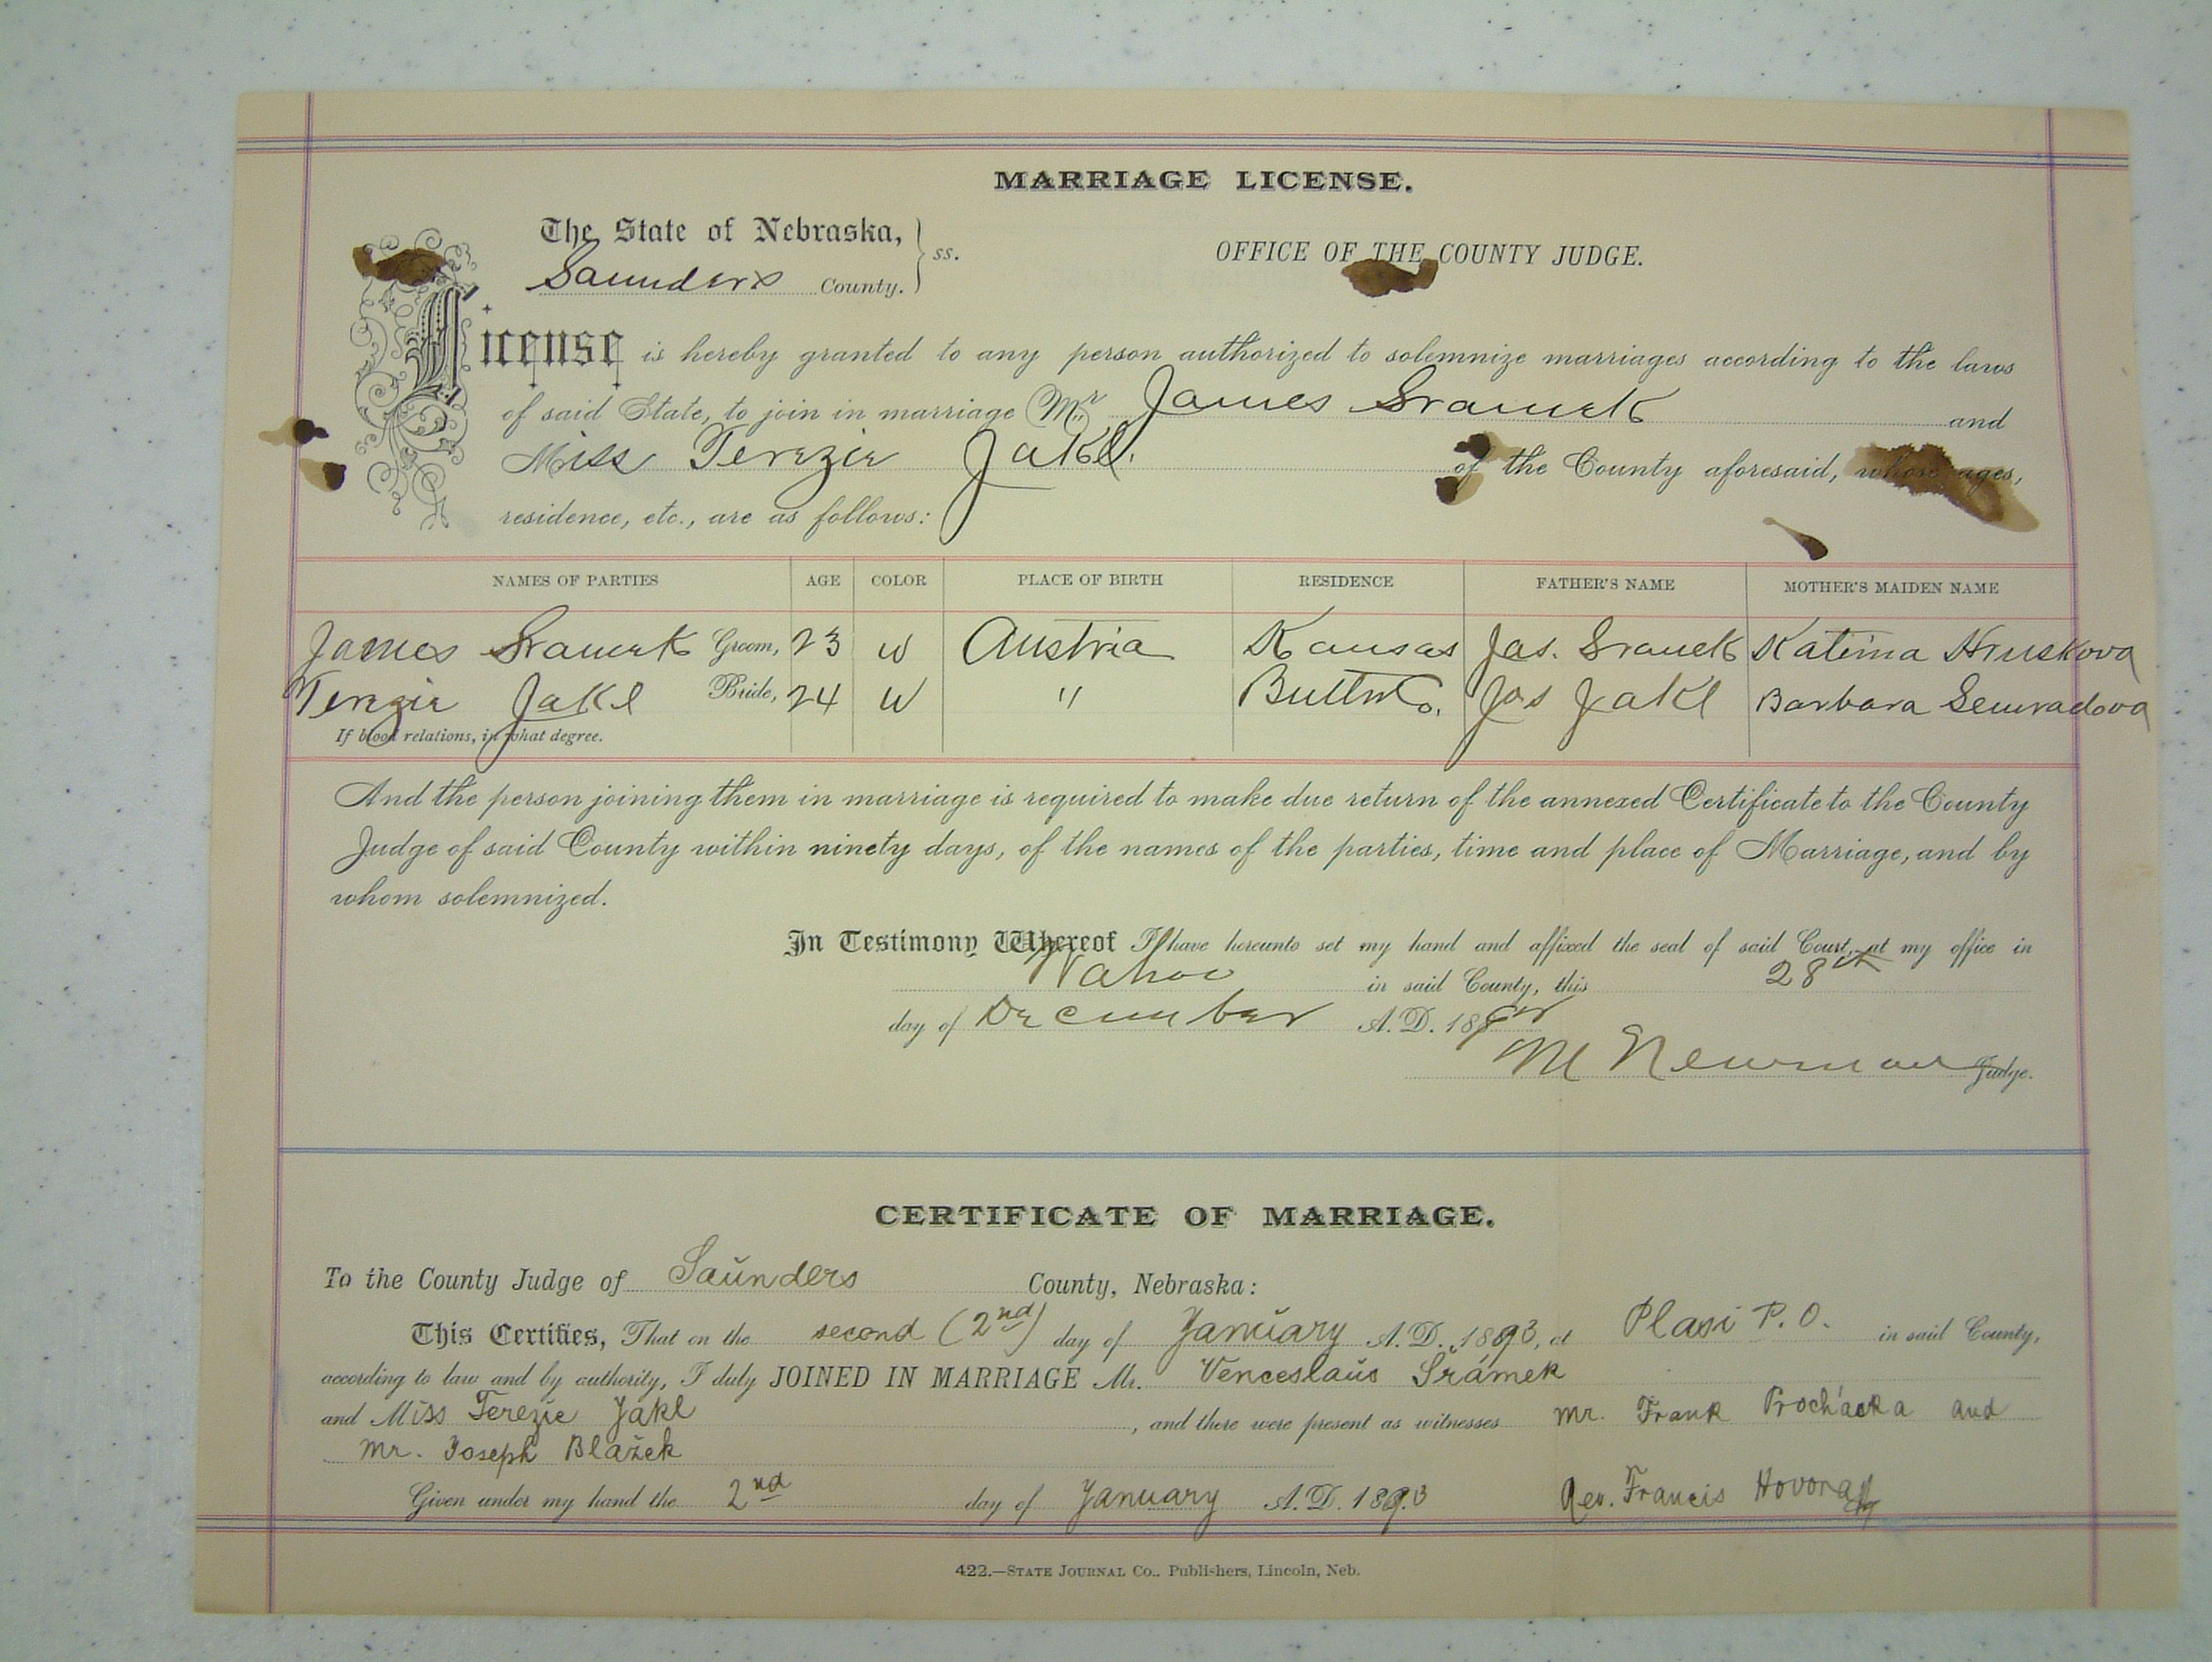 MARRIAGE LICENSE.
The State of Nebraska,
Saunders County. } ss.
OFFICE OF THE COUNTY JUDGE.
License is hereby granted to any person authorized to solemnize marriages according to the laws
of said State, to join in marriage Mr. James Sramek and
Miss Terezie Jakl. of the County aforesaid, whose ages,
residence, etc., are as follows:
NAMES OF PARTIES AGE COLOR PLACE OF BIRTH RESIDENCE FATHER'S NAME MOTHER'S MAIDEN NAME
James Sramek Groom, 23 W Austria Kansas Jas. Sramek Katerina Hruskova
Terezie Jakl Bride, 24 W " Butler Co. Jos Jakl Barbara Semradova
If blood relations, in what degree.
And the person joining them in marriage is required to make due return of the annexed Certificate to the County
Judge of said County within ninety days, of the names of the parties, time and place of Marriage, and by
whom solemnized.
In Testimony Whereof I have hereunto set my hand and affixed the seal of said Court, at my office in
Wahoo in said County, this 28th
day of December A. D. 189
M Newman Judge.
CERTIFICATE OF MARRIAGE.
To the County Judge of Saunders County, Nebraska:
This Certifies, That on the second (2nd) day of January A. D. 1893, at Plasi P. O. in said County,
according to law and by authority, I duly JOINED IN MARRIAGE Mr. Venceslaus Šrámek
and Miss Terezie Jákl, and there were present as witnesses Mr. Frank Procháska and
Mr. Joseph Blažek
Given under my hand the 2nd day of January A. D. 1893 Rev. Francis Hovorka
422.—STATE JOURNAL CO., Publishers, Lincoln, Neb.